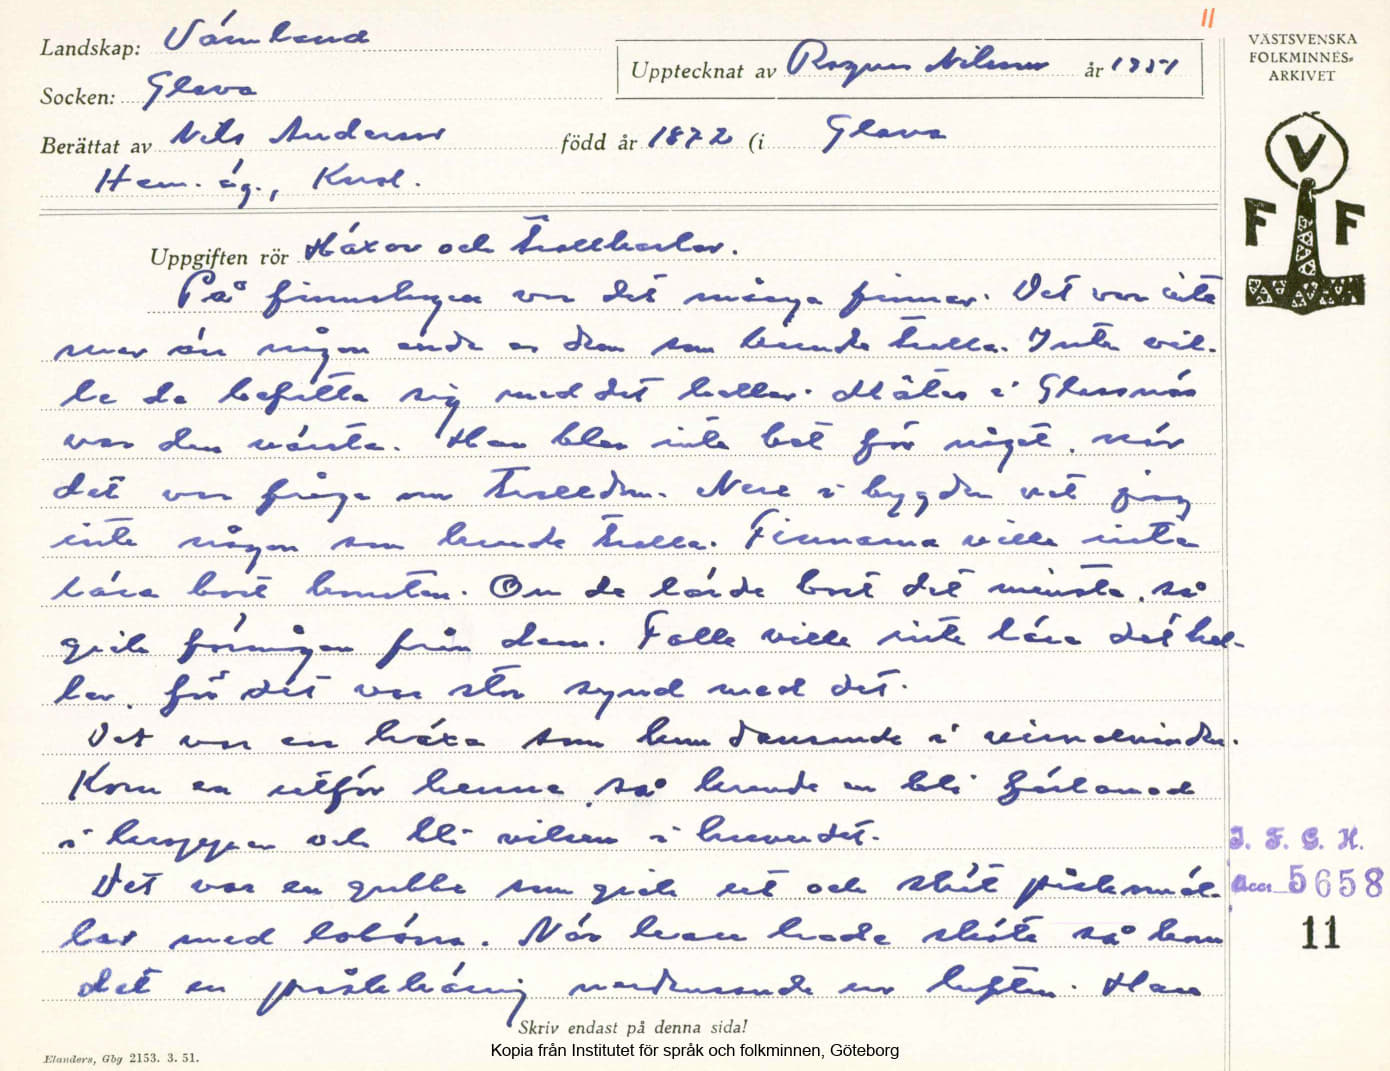 11
Landskap: Värmland
Socken: Glava
Upptecknat av Ragnar Nilsson år 1951
Berättat av Nils Anderson född år 1872 (i Glava
Hem. äg.,
VÄSTSVENSKA
FOLKMINNES-
ARKIVET
V
F F
Uppgiften rör Häxor och trollkarlar.
På finnskogen var det många finnar. Det var inte
mer än någon enda av dem som kunde trolla. Inte vil-
le de befatta sig med det heller. i Glassnäs
var den värsta. Han blev inte bet för något, när
det var fråga om trolldom. Nere i bygden vet jag
inte någon som kunde trolla. Finnarna ville inte
lära bort konsten. Om de lärde bort det minsta, så
gick förmågan från dem. Folk ville inte lära det hel-
ler, för det var stor synd med det.
Det var en häxa som kom dansande i virvelvinden.
Kom en utför henne, så kunde en bli förlamad
i kroppen och bli vilsen i huvudet.
Det var en gubbe som gick ut och sköt påsksmäl-
lar med lobössa. När han hade skôte så kom
det en påskkäring nerdunsande ur luften. Han
J. F. G. H.
Acc. 5658
11
Skriv endast på denna sida!
Elanders, Gbg 2153. 3. 51.
Kopia från Institutet för språk och folkminnen, Göteborg